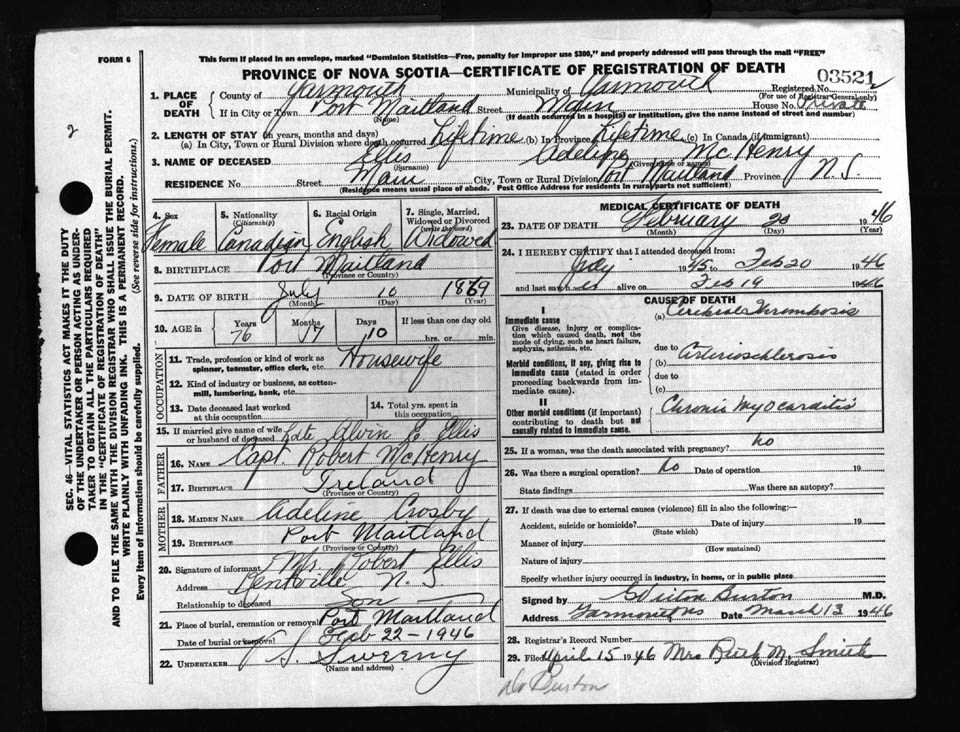 FORM 6
This form if placed in an envelope, marked "Dominion Statistics—Free, penalty for improper use $300," and properly addressed will pass through the mail "FREE"
PROVINCE OF NOVA SCOTIA—CERTIFICATE OF REGISTRATION OF DEATH
03521
1. PLACE OF DEATH County of Yarmouth Municipality of Yarmouth Registered No.
(For use of Registrar General only)
If in City or Town Port Maitland Street Main House No. Private
(Name) (If death occurred in a hospital or institution, give the name instead of street and number)
2. LENGTH OF STAY (in years, months and days)
(a) In City, Town or Rural Division where death occurred Lifetime (b) In Province Lifetime (c) In Canada (if immigrant)
3. NAME OF DECEASED Ellis Adeline McHenry
(Surname) (Given name or names)
RESIDENCE No. Street Main City, Town or Rural Division Port Maitland Province N.S.
(Residence means usual place of abode. Post Office Address for residents in rural parts not sufficient)
4. Sex 5. Nationality (Citizenship) 6. Racial Origin 7. Single, Married, Widowed or Divorced (write the word)
Female Canadian English Widowed
8. BIRTHPLACE Port Maitland
(Province or Country)
9. DATE OF BIRTH July 10 1869
(Month) (Day) (Year)
10. AGE in Years Months Days If less than one day old
76 7 10 hrs. or min.
OCCUPATION
11. Trade, profession or kind of work as spinner, teamster, office clerk, etc. Housewife
12. Kind of industry or business, as cotton-mill, lumbering, bank, etc.
13. Date deceased last worked at this occupation
14. Total yrs. spent in this occupation
15. If married give name of wife or husband of deceased Late Alvin E. Ellis
FATHER
16. NAME Capt. Robert McHenry
17. BIRTHPLACE Ireland
(Province or Country)
MOTHER
18. MAIDEN NAME Adeline Crosby
19. BIRTHPLACE Port Maitland
(Province or Country)
20. Signature of informant Mr Robert Ellis
Address Kentville N.S
Relationship to deceased Son
21. Place of burial, cremation or removal Port Maitland
Date of burial or removal Feb 22-1946
22. UNDERTAKER Sweeny
(Name and address)
MEDICAL CERTIFICATE OF DEATH
23. DATE OF DEATH February 20 1946
(Month) (Day) (Year)
24. I HEREBY CERTIFY that I attended deceased from:
July 1945 to Feb 20 1946
and last saw her alive on Feb 19 1946
CAUSE OF DEATH
I
Immediate cause
Give disease, injury or complication which caused death, not the mode of dying, such as heart failure, asphyxia, asthenia, etc.
(a) Cerebral Thrombosis
due to
Morbid conditions, if any, giving rise to immediate cause (stated in order proceeding backwards from immediate cause).
(b) Arteriosclerosis
due to
(c)
II
Other morbid conditions (if important) contributing to death but not causally related to immediate cause.
Chronic Myocarditis
25. If a woman, was the death associated with pregnancy? no
26. Was there a surgical operation? no Date of operation 19
State findings Was there an autopsy?
27. If death was due to external causes (violence) fill in also the following:—
Accident, suicide or homicide? Date of injury 19
(State which)
Manner of injury
(How sustained)
Nature of injury
Specify whether injury occurred in industry, in home, or in public place
Signed by Burton M.D.
Address Yarmouth NS Date March 13 1946
28. Registrar's Record Number
29. Filed April 15 1946 Mrs Ruth M. Smith
(Division Registrar)
Dr Burton
2
SEC. 46—VITAL STATISTICS ACT MAKES IT THE DUTY
OF THE UNDERTAKER OR PERSON ACTING AS UNDER-
TAKER TO OBTAIN ALL THE PARTICULARS REQUIRED
IN THE "CERTIFICATE OF REGISTRATION OF DEATH"
AND TO FILE THE SAME WITH THE DIVISION REGISTRAR WHO SHALL ISSUE THE BURIAL PERMIT.
WRITE PLAINLY WITH UNFADING INK. THIS IS A PERMANENT RECORD.
Every item of information should be carefully supplied. (See reverse side for instructions.)